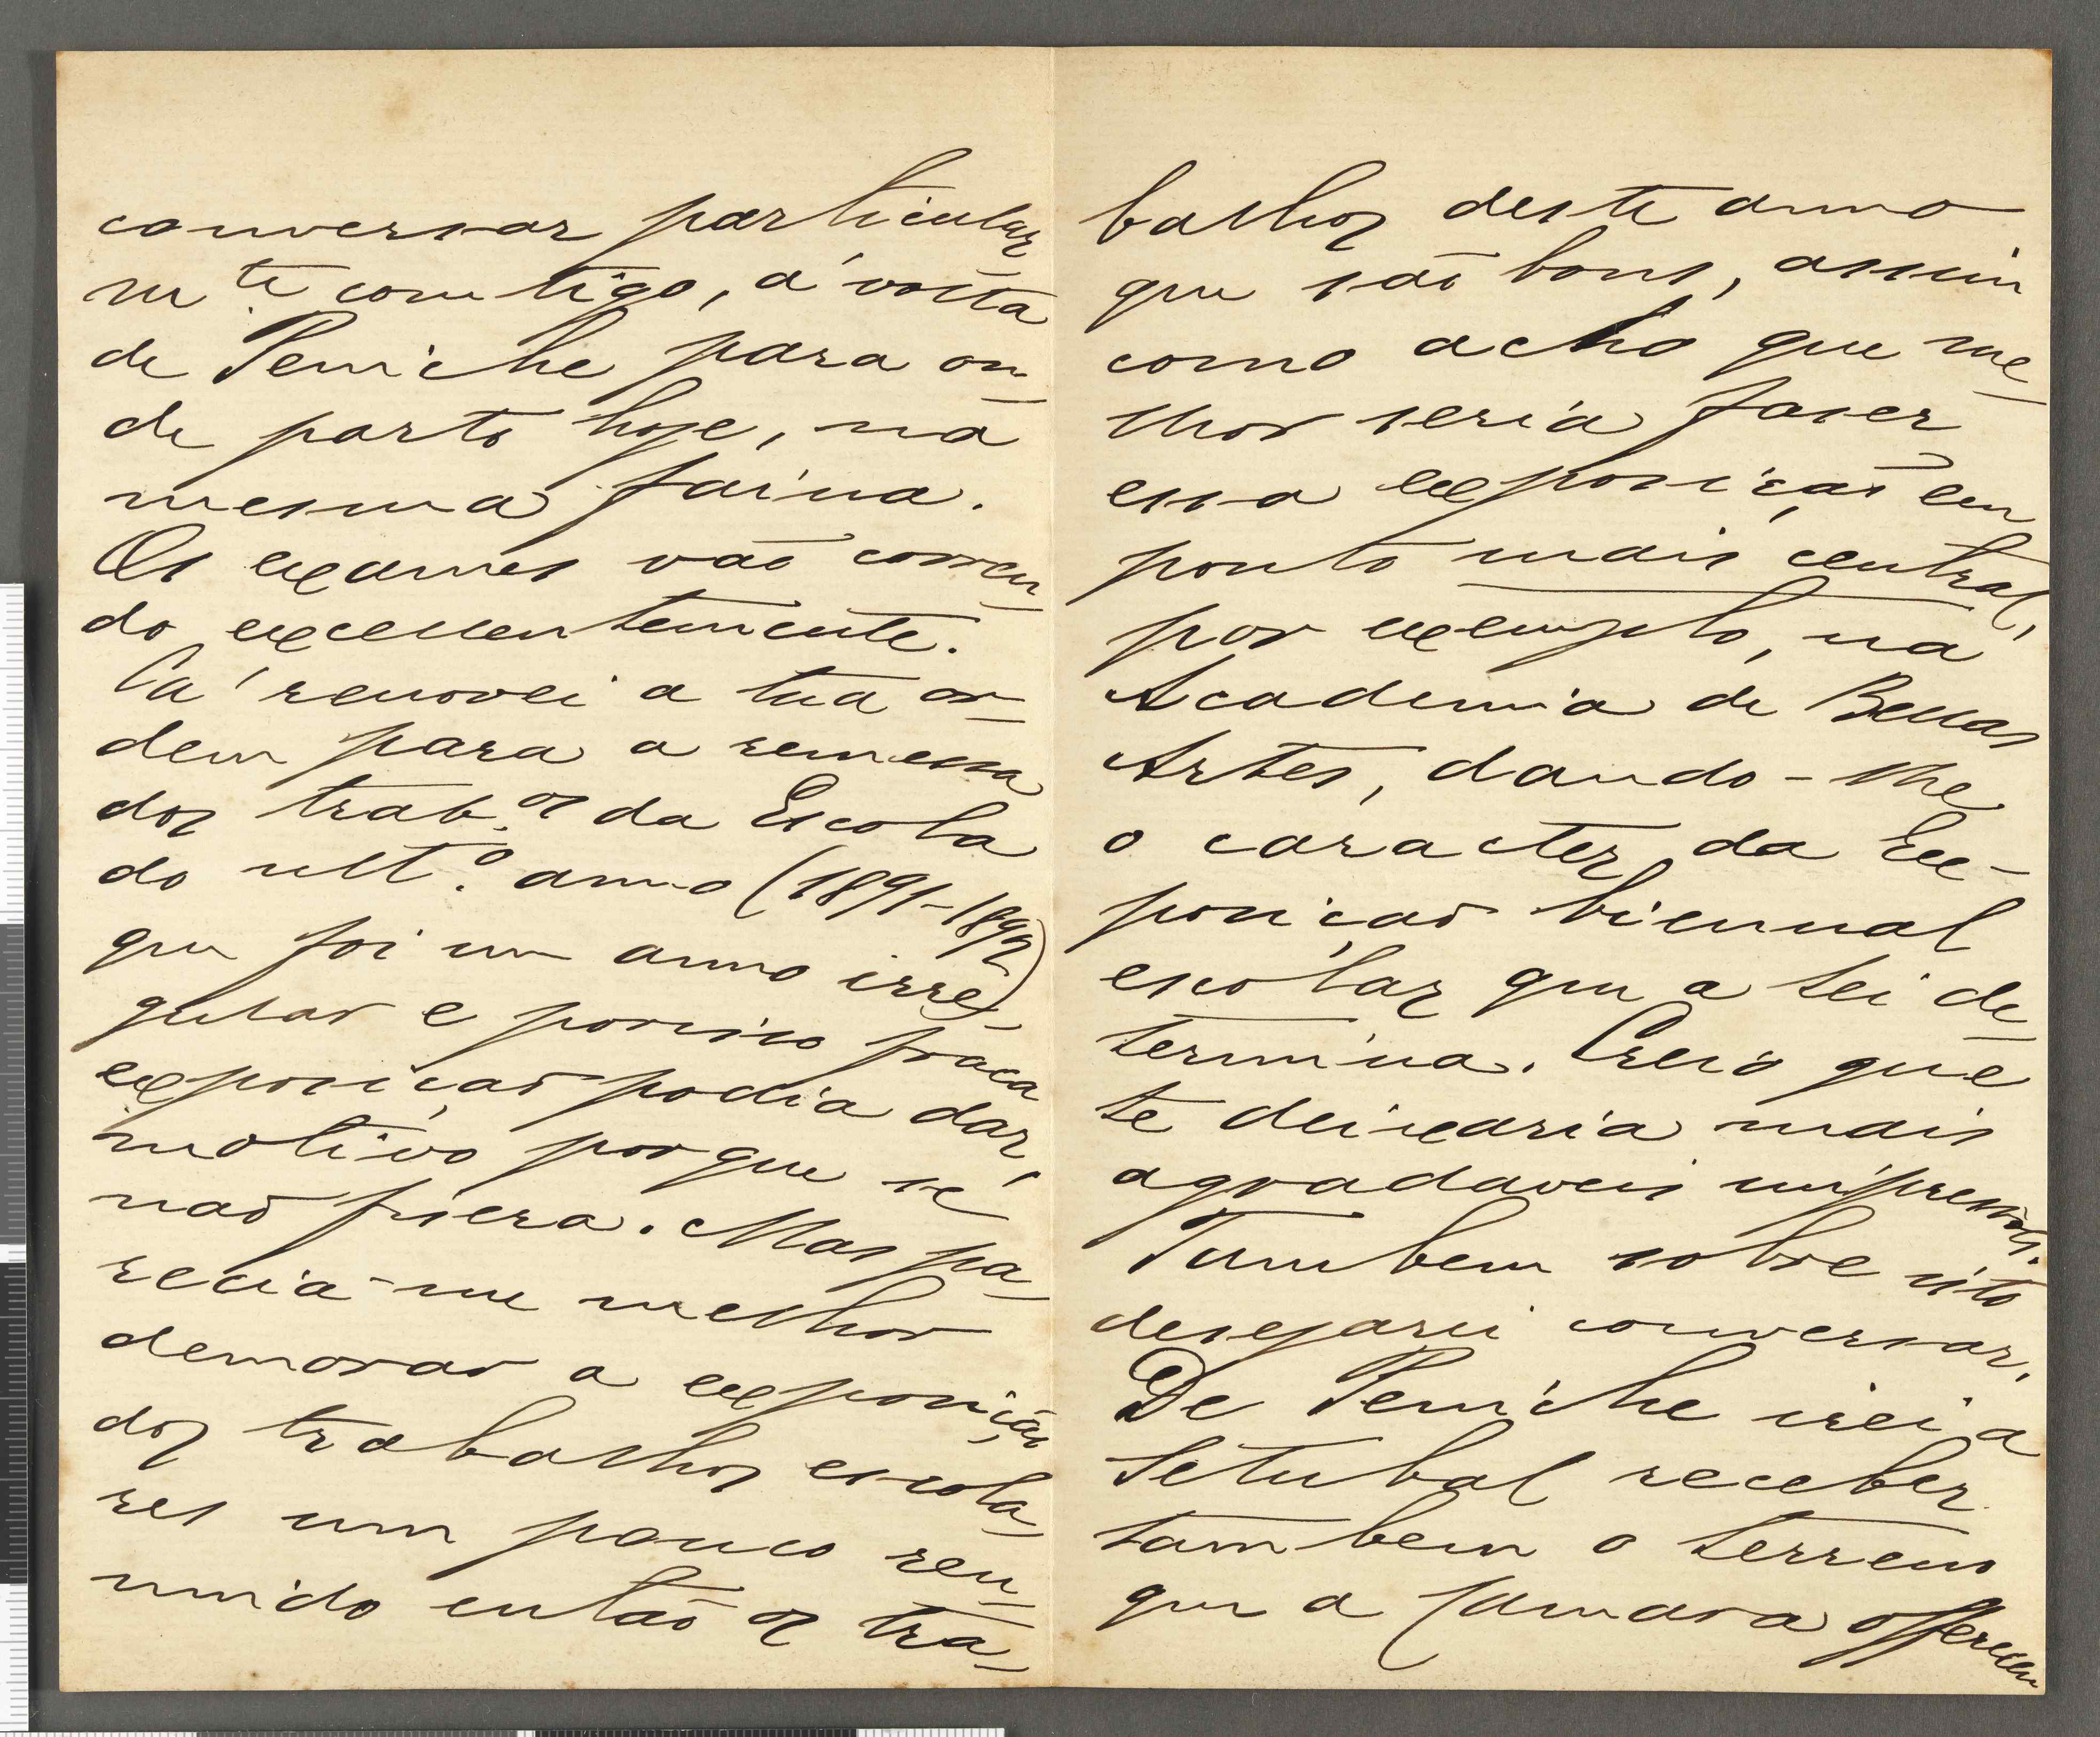 conversar particular
m.te comtigo, á volta
de Peniche para on-
de parto hoje, na
mesma faina.
Os exames vão corren-
do excellentemente.
Cá renovei a tua or-
dem para a remessa
dos trab.os da Escola
do ult.o anno (1891-1892)
que foi um anno irre-
gular e por isso fraca
exposição podia dar,
motivo por que se
não fizera. Mas pa-
recia-me melhor
demorar a exposição
dos trabalhos escola-
res um pouco reu-
nindo então os tra-
balhos deste anno
que são bons, assim
como acho que me-
lhor seria faser
essa exposição em
ponto mais central,
por exemplo, na
Academia de Bellas
Artes, dando-lhe
o caracter da Ex-
posição biennal
escolar que a lei de-
termina. Creio que
te deixaria mais
agradaveis impressões.
Tambem sobre isto
desejarei conversar.
De Peniche irei a
Setubal receber
tambem o terreno
que a Camara offereceu